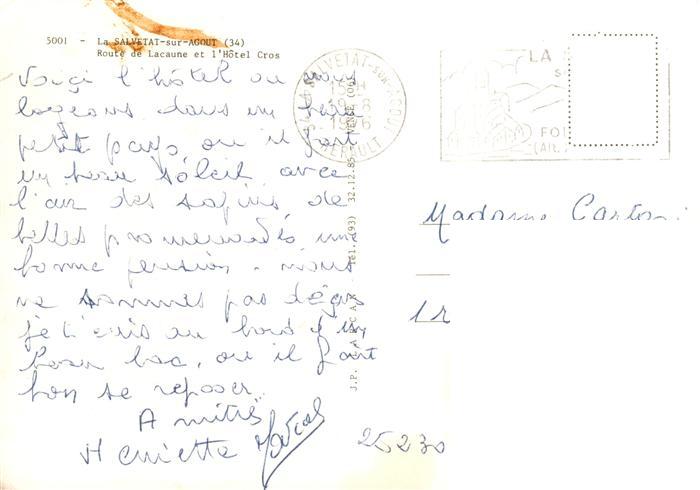 5001 - La SALVETAT-sur-AGOUT (34)
Route de Lacaune et l'Hôtel Cros
Voiçi l'hôtel ou nous
logeons dans un beau
petit pays ou il fait
un beau soleil avec
l'air des sapins de
belles promenades une
bonne pension. nous
ne sommes pas déçus
je t'ecris au bord d'un
beau lac, ou il fait
bon se reposer
Amitiés
Henriette
34 LA SALVETAT-SUR-AGOUT
HERAULT
LA
(ALT.
J.P. APCAX - Tél. (93) 32.12.85 VENCE (06)
Madame
25230